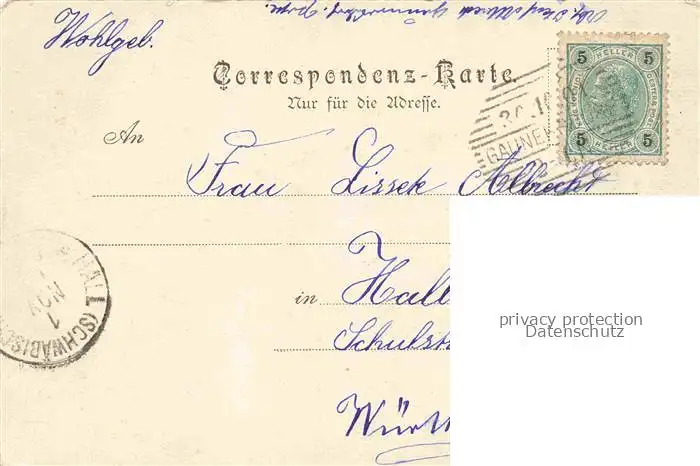 Wohlgeb.
Correspondenz-Karte.
Nur für die Adresse.
5 HELLER 5
5 HELLER 5
30.10
GAUNE
An
Frau Lissek Albrecht
in Hall
Schulst
Württ
HALL (SCHWÄBISCH
1 NOV
privacy protection
Datenschutz